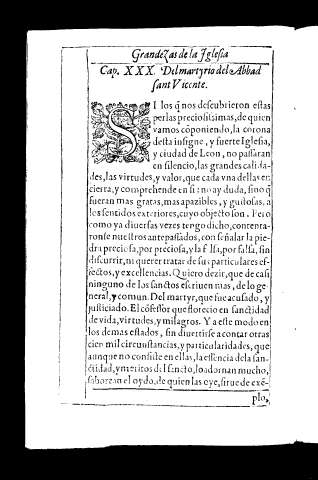 Grandezas de la Iglesia
Cap. XXX. Del martyrio del Abbad
sant Vicente.
SI los q̃ nos descubrieron estas
perlas preciosissimas, de quien
vamos cõponiendo, la corona
desta insigne, y fuerte Iglesia,
y ciudad de Leon, no passaran
en silencio, las grandes calida-
des, las virtudes, y valor, que cada vna dellas en
cierra, y comprehende en si: no ay duda, sino q̃
fueran mas gratas, mas apazibles, y gustosas, a
los sentidos exteriores, cuyo objecto son. Pero
como ya diuersas vezes tengo dicho, contenta-
ronse nuestros antepassados, con señalar la pie-
dra preciosa, por preciosa, y la falsa, por falsa, sin
discurrir, ni querer tratar de sus particulares ef-
fectos, y excellencias. Quiero dezir, que de casi
ninguno de los sanctos escriuen mas, de lo ge-
neral, y comun. Del martyr, que fue acusado, y
justiciado. El cõfessor que florecio en sanctidad
de vida, virtudes, y milagros. Y a este modo en
los demas estados, sin diuertirse a contar otras
cien mil circunstancias, y particularidades, que
aunque no consiste en ellas, la essencia de la san-
ctidad, y meritos del sancto, lo adornan mucho,
saborean el oydo, de quien las oye, sirue de exẽ-
plo,